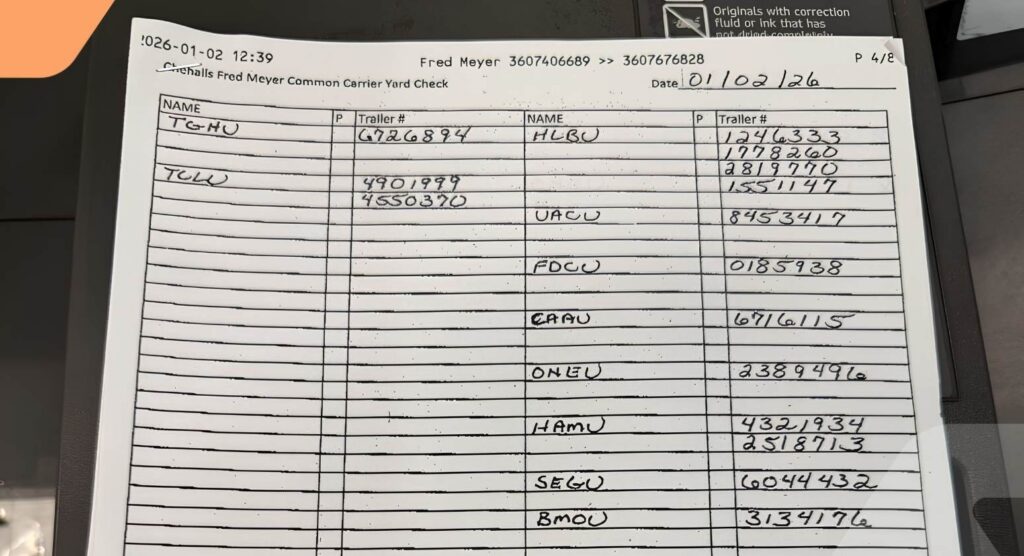 Originals with correction
fluid or ink that has
not dried completely
2026-01-02 12:39 Fred Meyer 3607406689 >> 3607676828 P 4/8
Chehalis Fred Meyer Common Carrier Yard Check Date 01/02/26
NAME P Trailer # NAME P Trailer #
TGHU 6726894 HLBU 1246333
1778260
2819770
TCLU 4901999 1551147
4550370
UACU 8453417
FDCU 0185938
CAAU 6716115
ONEU 2389496
HAMU 4321934
2518713
SEGU 6044432
BMOU 3134176